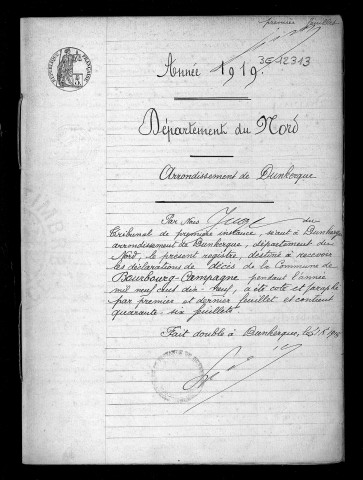 premier feuillet
3E 12313
RÉPUBLIQUE FRANÇAISE
Année 1919.
Département du Nord
Arrondissement de Dunkerque
Par Nous Juge du
Tribunal de première instance, séant à Dunkerque
arrondissement de Dunkerque, département du
Nord, le présent registre, destiné à recevoir
les déclarations de décès de la Commune de
Bourbourg-Campagne pendant l'année
mil neuf cent dix-neuf, a été coté et paraphé
par premier et dernier feuillet et contient
quarante-six feuillets.
Fait double à Dunkerque, le